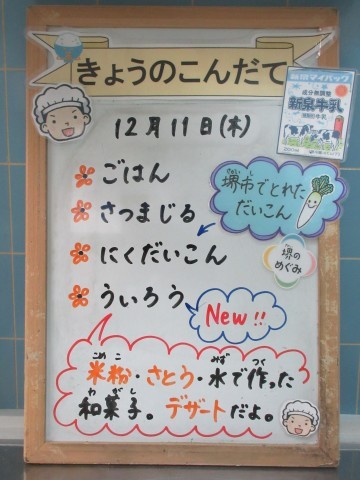 きょうのこんだて
12月11日(木)
ごはん
さつまじる
にくだいこん
ういろう
New!!
米粉・さとう・水で作った
和菓子。デザートだよ。
堺市でとれた
だいこん
堺の
めぐみ
成分無調整
新泉牛乳